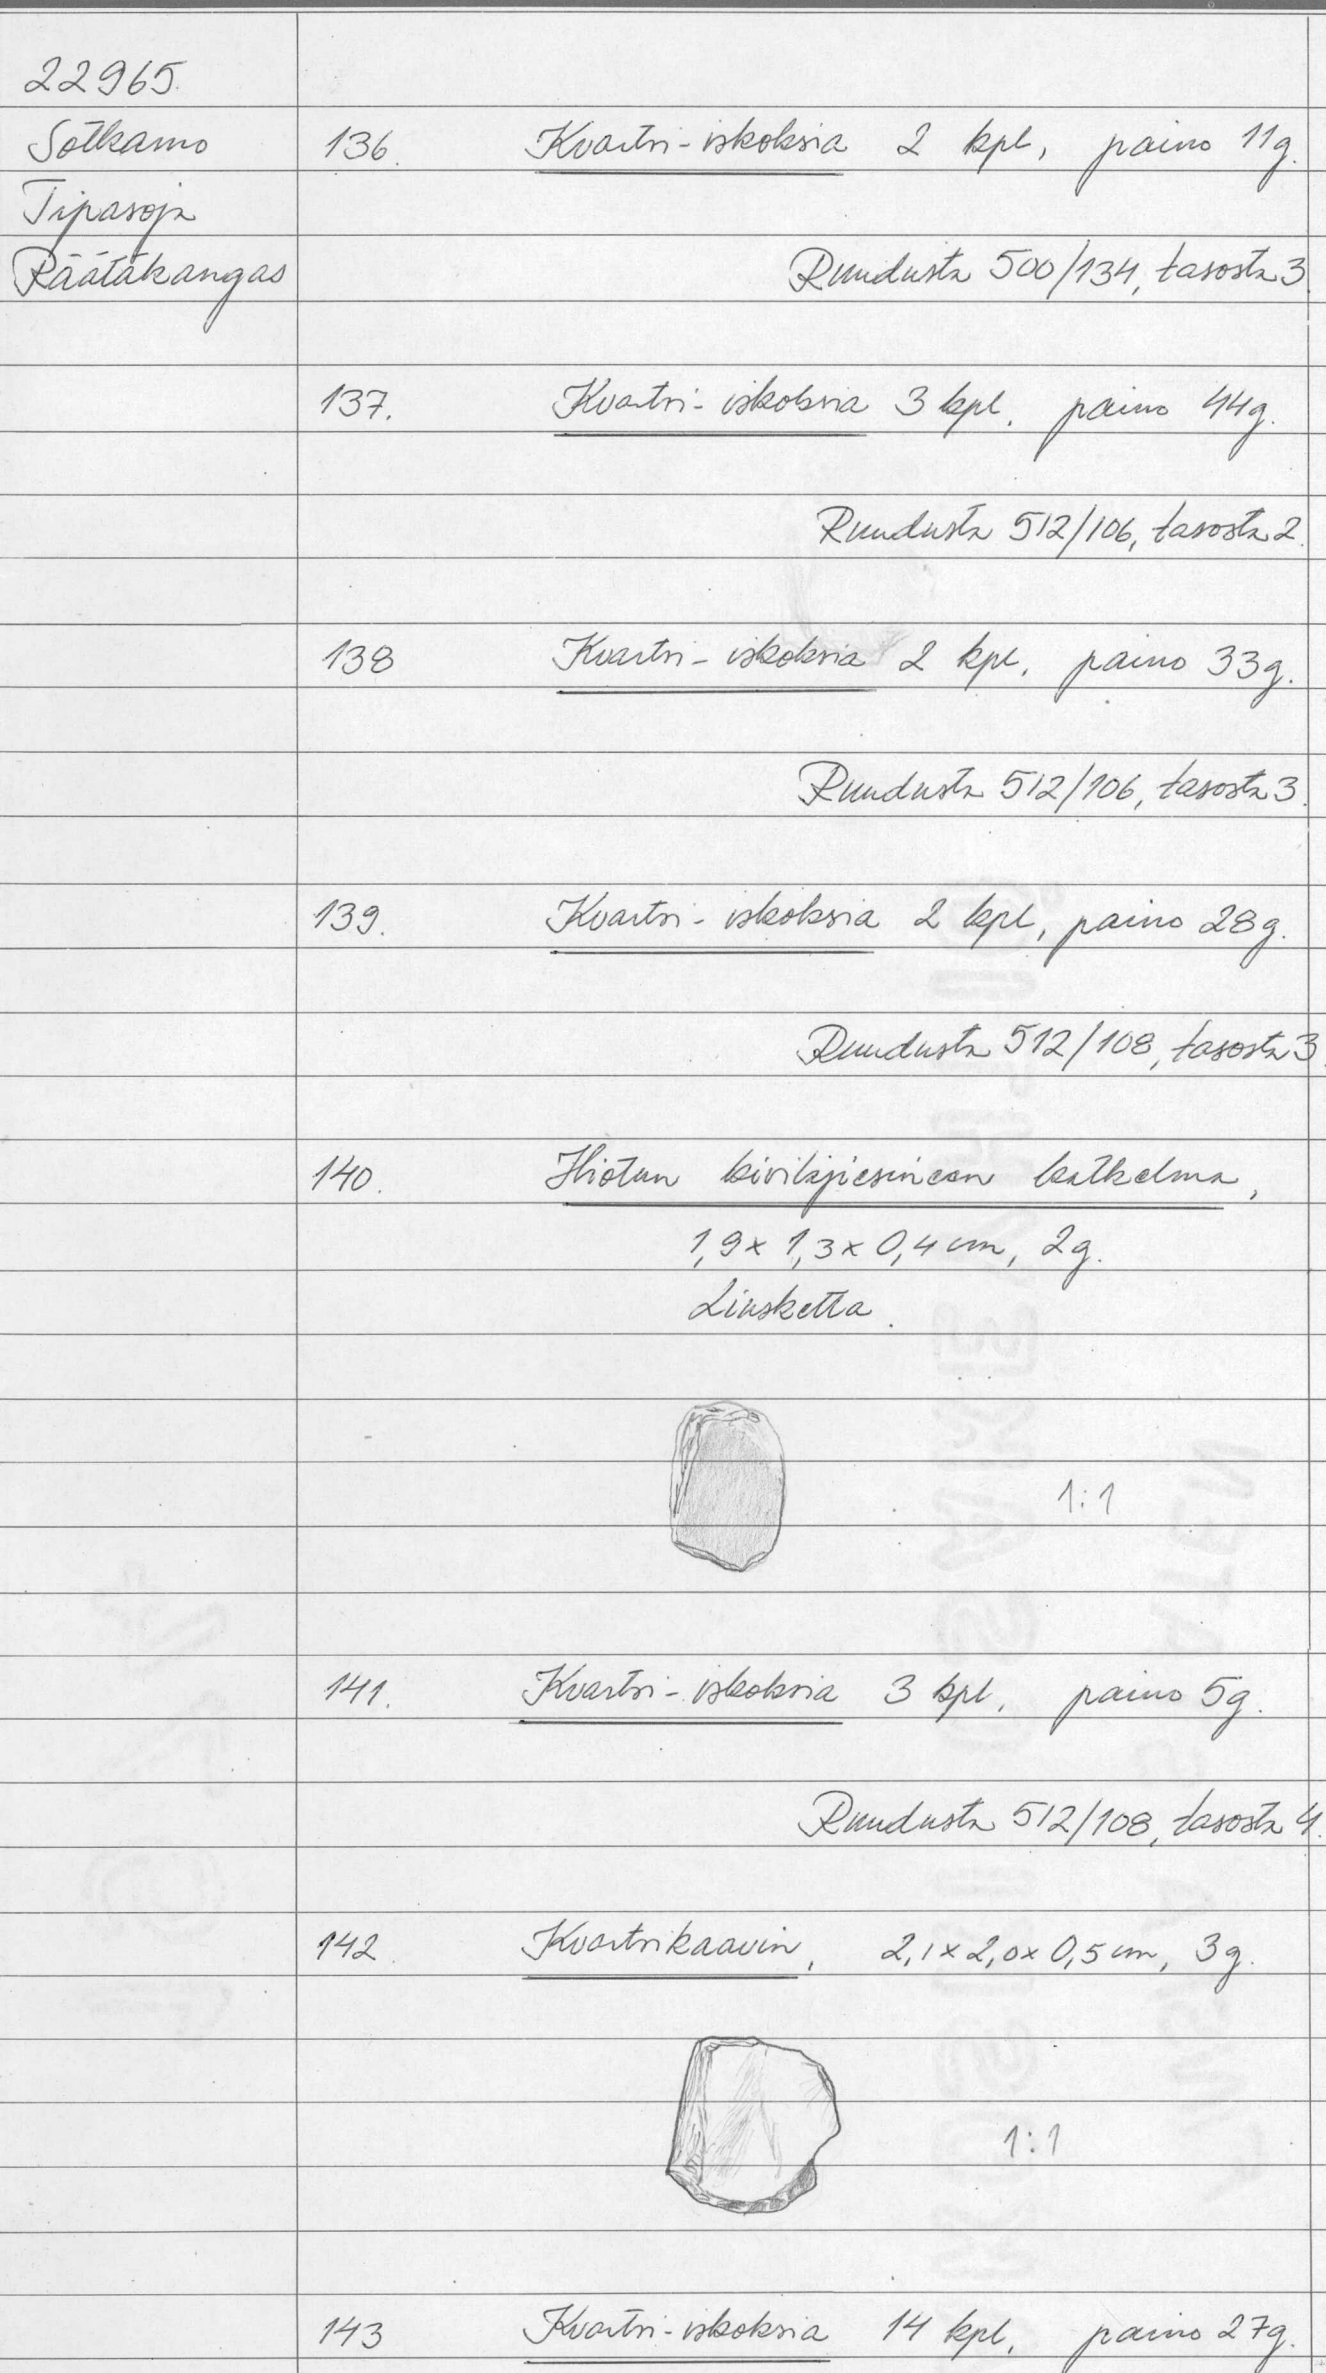 22965.
Sotkamo
Tipasoja
Räätäkangas
136. Kvartsi-iskoksia 2 kpl, paino 11g.
Ruudusta 500/134, tasosta 3.
137. Kvartsi-iskoksia 3 kpl, paino 44g.
Ruudusta 512/106, tasosta 2.
138 Kvartsi-iskoksia 2 kpl, paino 33g.
Ruudusta 512/106, tasosta 3.
139. Kvartsi-iskoksia 2 kpl, paino 28g.
Ruudusta 512/108, tasosta 3.
140. Hiotun kivilajiesineen katkelma,
1,9 x 1,3 x 0,4 cm, 2g.
Liusketta.
1:1
141. Kvartsi-iskoksia 3 kpl, paino 5g.
Ruudusta 512/108, tasosta 4.
142 Kvartsikaavin, 2,1 x 2,0 x 0,5 cm, 3g.
1:1
143 Kvartsi-iskoksia 14 kpl, paino 27g.